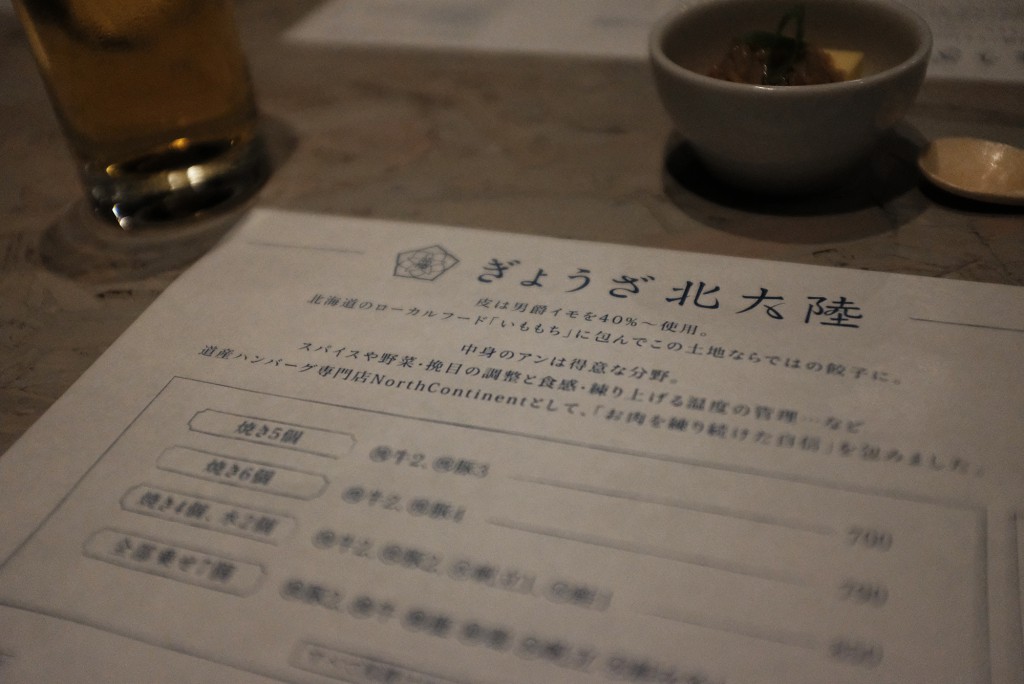 ぎょうざ北大陸
皮は男爵イモを40%〜使用。
北海道のローカルフード「いももち」に包んでこの土地ならではの餃子に。
中身のアンは得意な分野。
スパイスや野菜・挽目の調整と食感・練り上げる温度の管理…など
道産ハンバーグ専門店NorthContinentとして、「お肉を練り続けた自信」を包みました。
焼き5個 牛2、豚3 700
焼き6個 牛2、豚4 790
焼き4個、水2個 牛2、豚2
全部乗せ7個